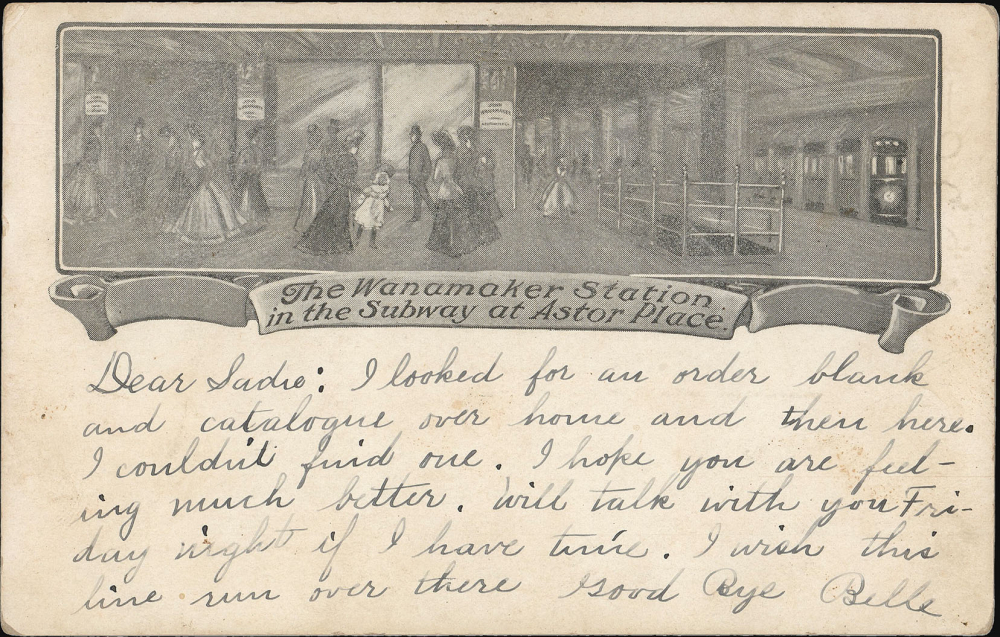 JOHN WANAMAKER
The Wanamaker Station
in the Subway at Astor Place.
Dear Sadie: I looked for an order blank
and catalogue over home and then here.
I couldn't find one. I hope you are feel-
ing much better. Will talk with you Fri-
day night if I have time. I wish this
line run over there Good Bye Belle